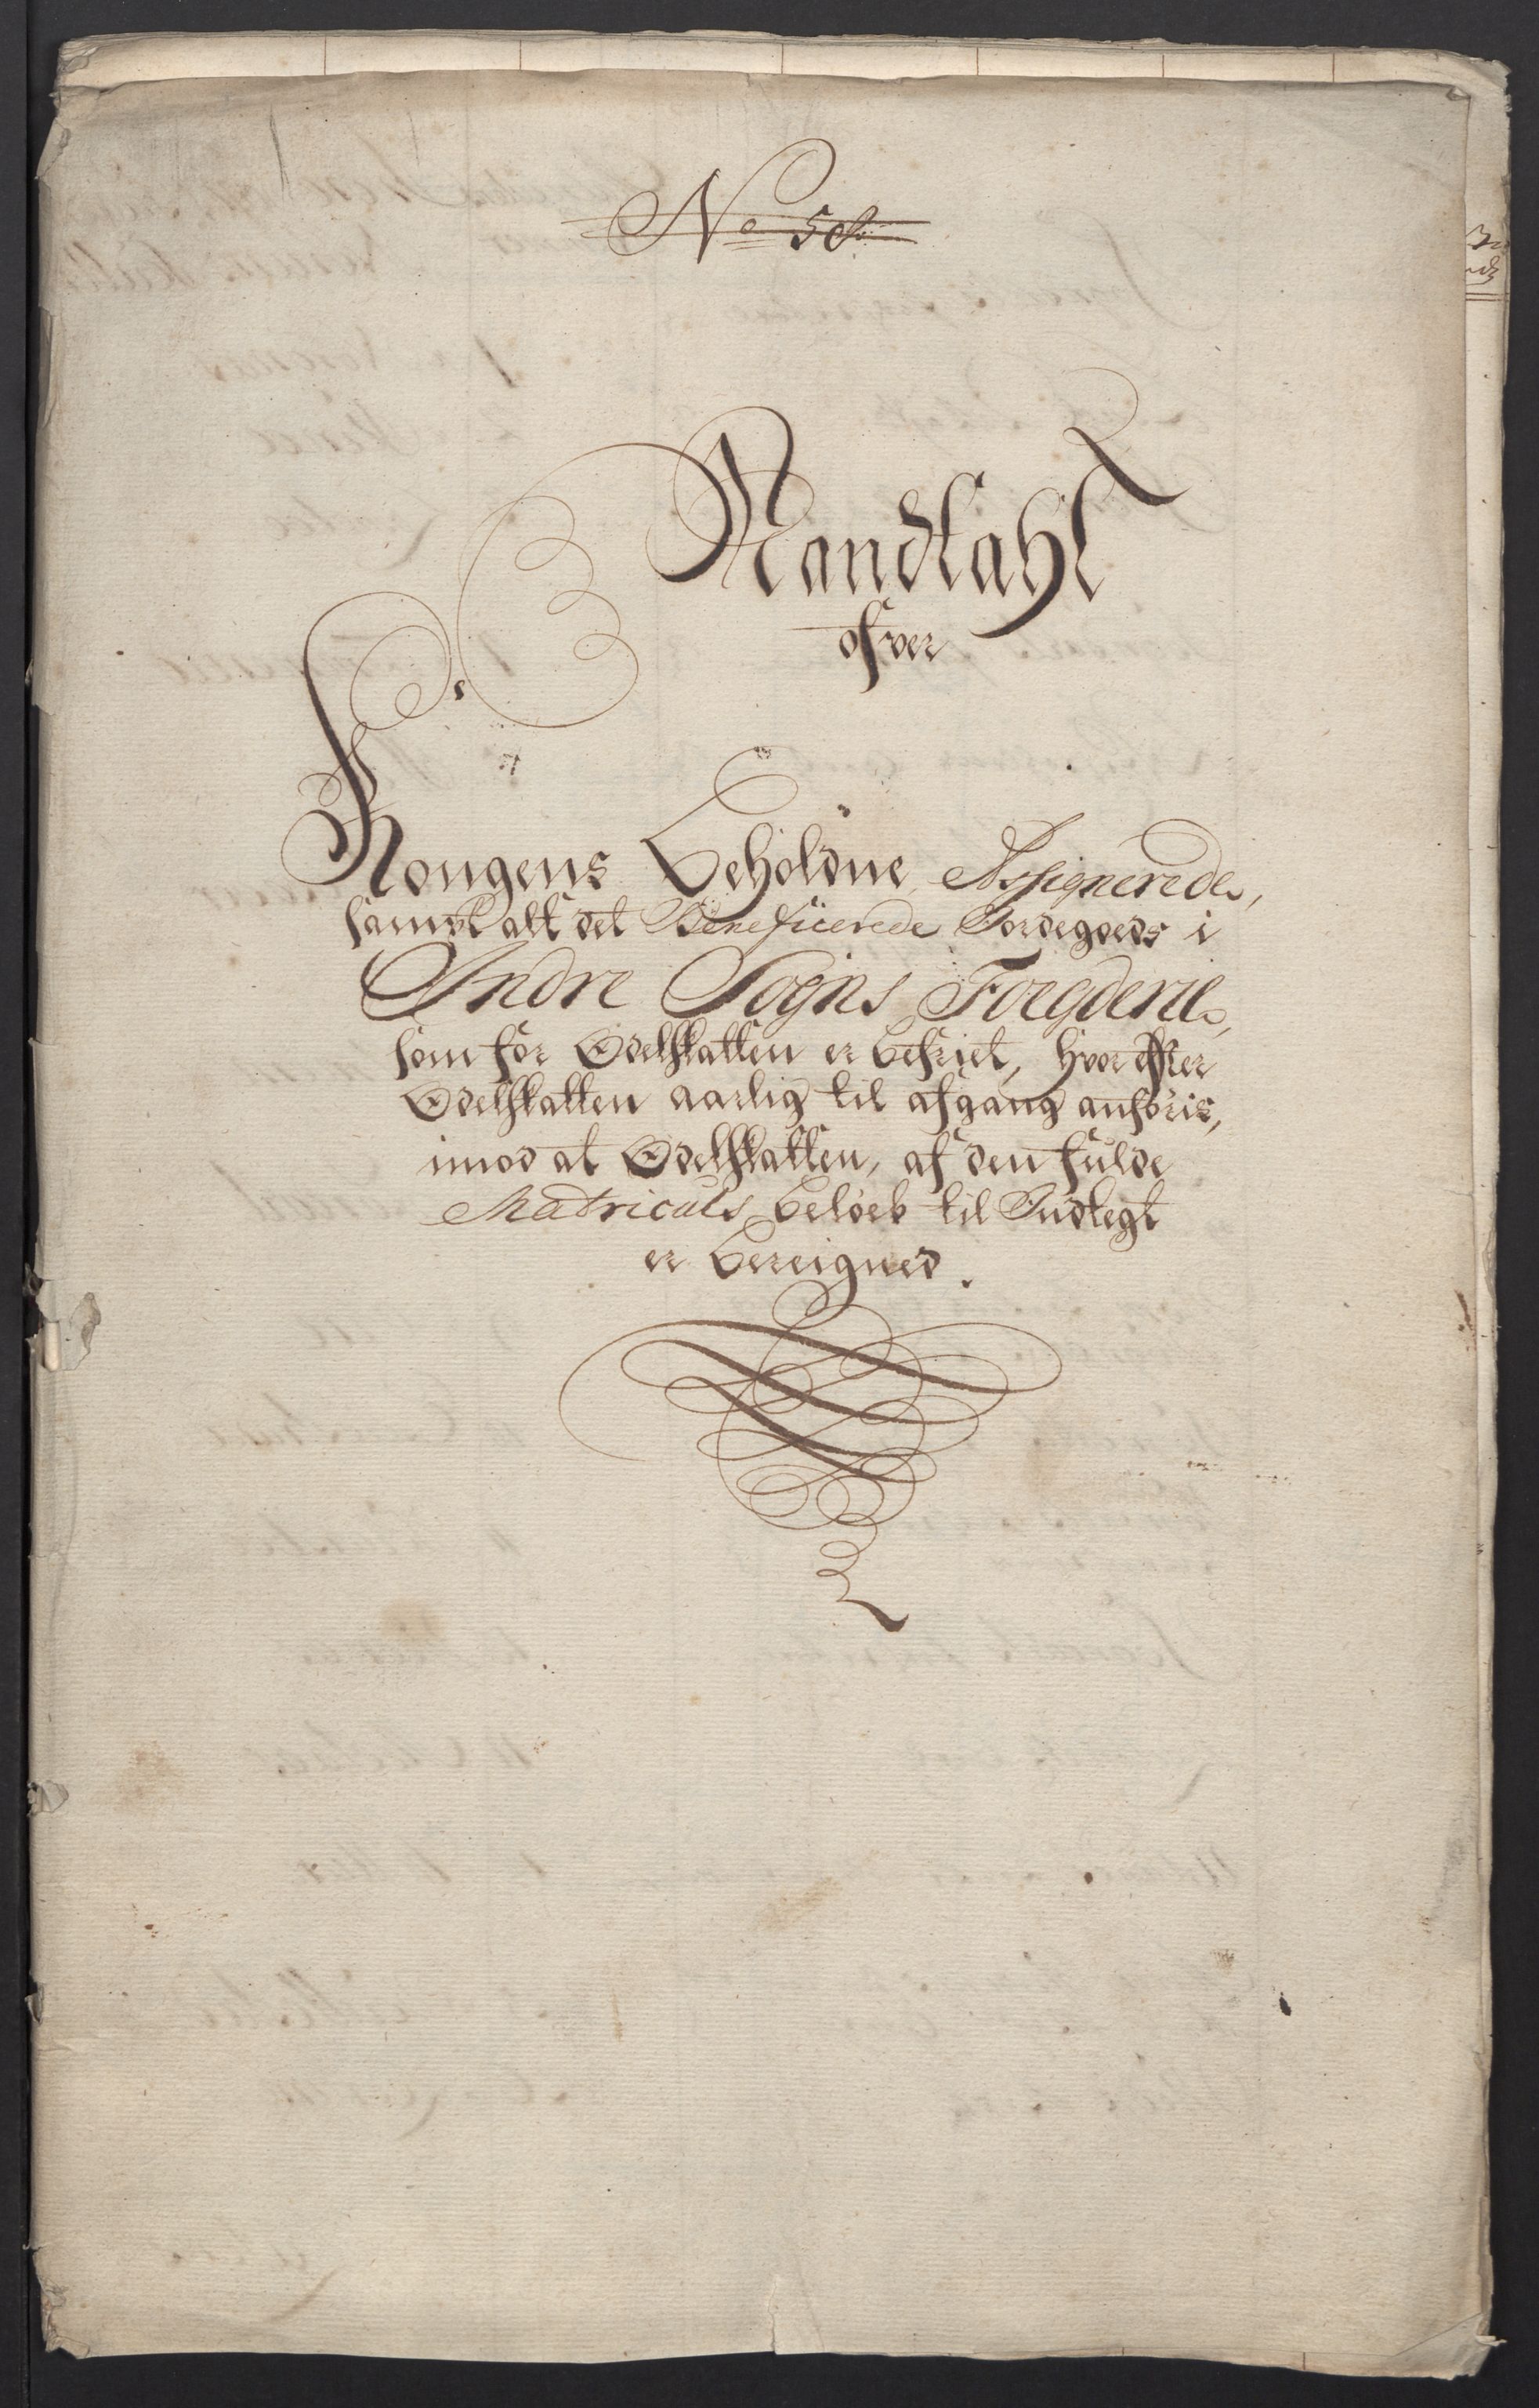 No 58.
Mandtahl
ofver
Kongens Beholdne, Assignerede,
samt alt det Beneficerede Jordegoeds i
Indre Sogns Foegderie,
som for Odelskatten er befriet, hvorefter
Odelskatten aarlig til afgang anføris,
imod at Odelskatten, af den fulde
Matriculs beløeb til Indtegt
er bereigned.